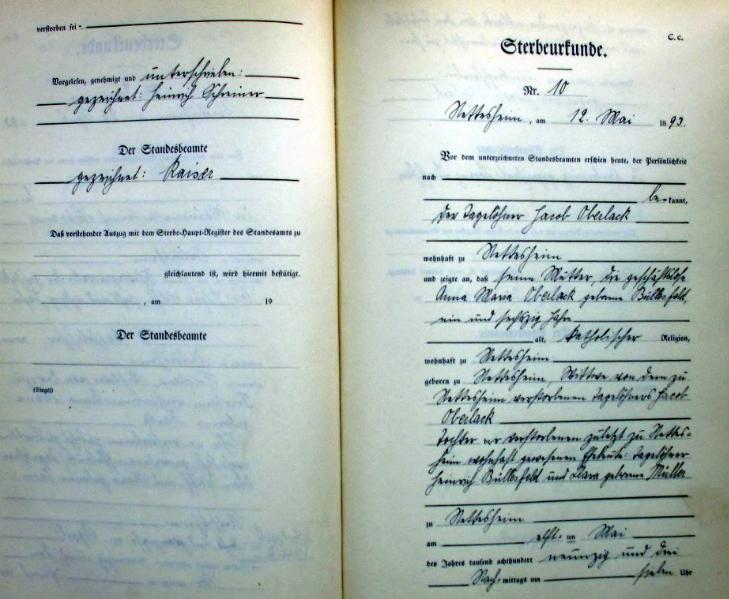 verstorben sei.
Vorgelesen, genehmigt und unterschrieben:
gezeichnet: Heinrich Schreiner
Der Standesbeamte
gezeichnet: Kaiser
Daß vorstehender Auszug mit dem Sterbe-Haupt-Register des Standesamts zu
gleichlautend ist, wird hiermit bestätigt.
, am 19
Der Standesbeamte
(Siegel)
C. c.
Sterbeurkunde.
Nr. 10
Nettesheim, am 12. Mai 1893.
Vor dem unterzeichneten Standesbeamten erschien heute, der Persönlichkeit
nach
bekannt,
der Tagelöhner Jacob Oberlack
wohnhaft zu Nettesheim
und zeigte an, daß seine Mutter, die geschäftslose
Anna Maria Oberlack geborene Büllesfeld,
ein und sechszig Jahre
alt, katholischer Religion,
wohnhaft zu Nettesheim
geboren zu Nettesheim, Wittwe von dem zu
Nettesheim verstorbenen Tagelöhners Jacob
Oberlack
Tochter der verstorbenen zuletzt zu Nettes-
heim wohnhaft gewesenen Eheleute: Tagelöhner
Heinrich Büllesfeld und Clara geborene Müller
zu Nettesheim
am elften Mai
des Jahres tausend achthundert neunzig und drei
Nachmittags um sieben Uhr